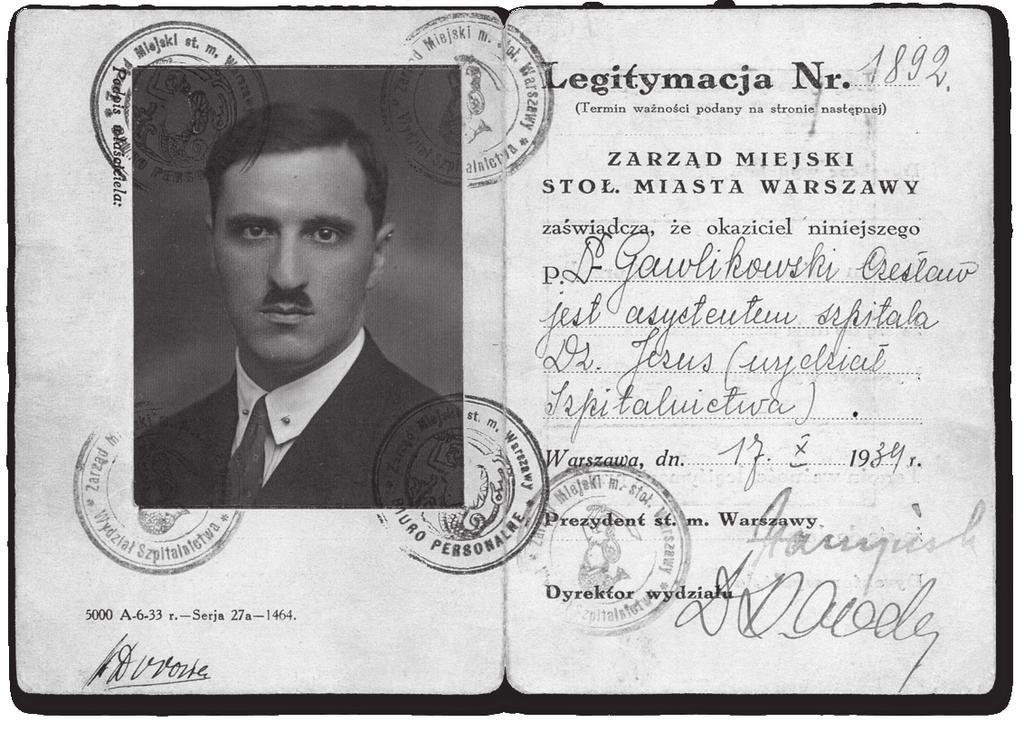 Zarząd Miejski st. m. Warszawy
Zarząd Miejski m. stoł. Warszawy
Wydział Szpitalnictwa
Podpis właściciela:
Zarząd M.
Wydział Szpitalnictwa
Zarząd Miejski st. m. Warszawy
BIURO PERSONALNE
5000 A-6-33 r.—Serja 27a—1464.
Legitymacja Nr. 1892.
(Termin ważności podany na stronie następnej)
ZARZĄD MIEJSKI
STOŁ. MIASTA WARSZAWY
zaświadcza, że okaziciel niniejszego
p. Dr Gawlikowski Czesław
jest asystentem szpitala
Dz. Jezus (wydział
Szpitalnictwa).
Warszawa, dn. 17. X 1934 r.
Prezydent st. m. Warszawy
Dyrektor wydziału
Miejski m. stoł. Warszawy
Szpitalnictwa